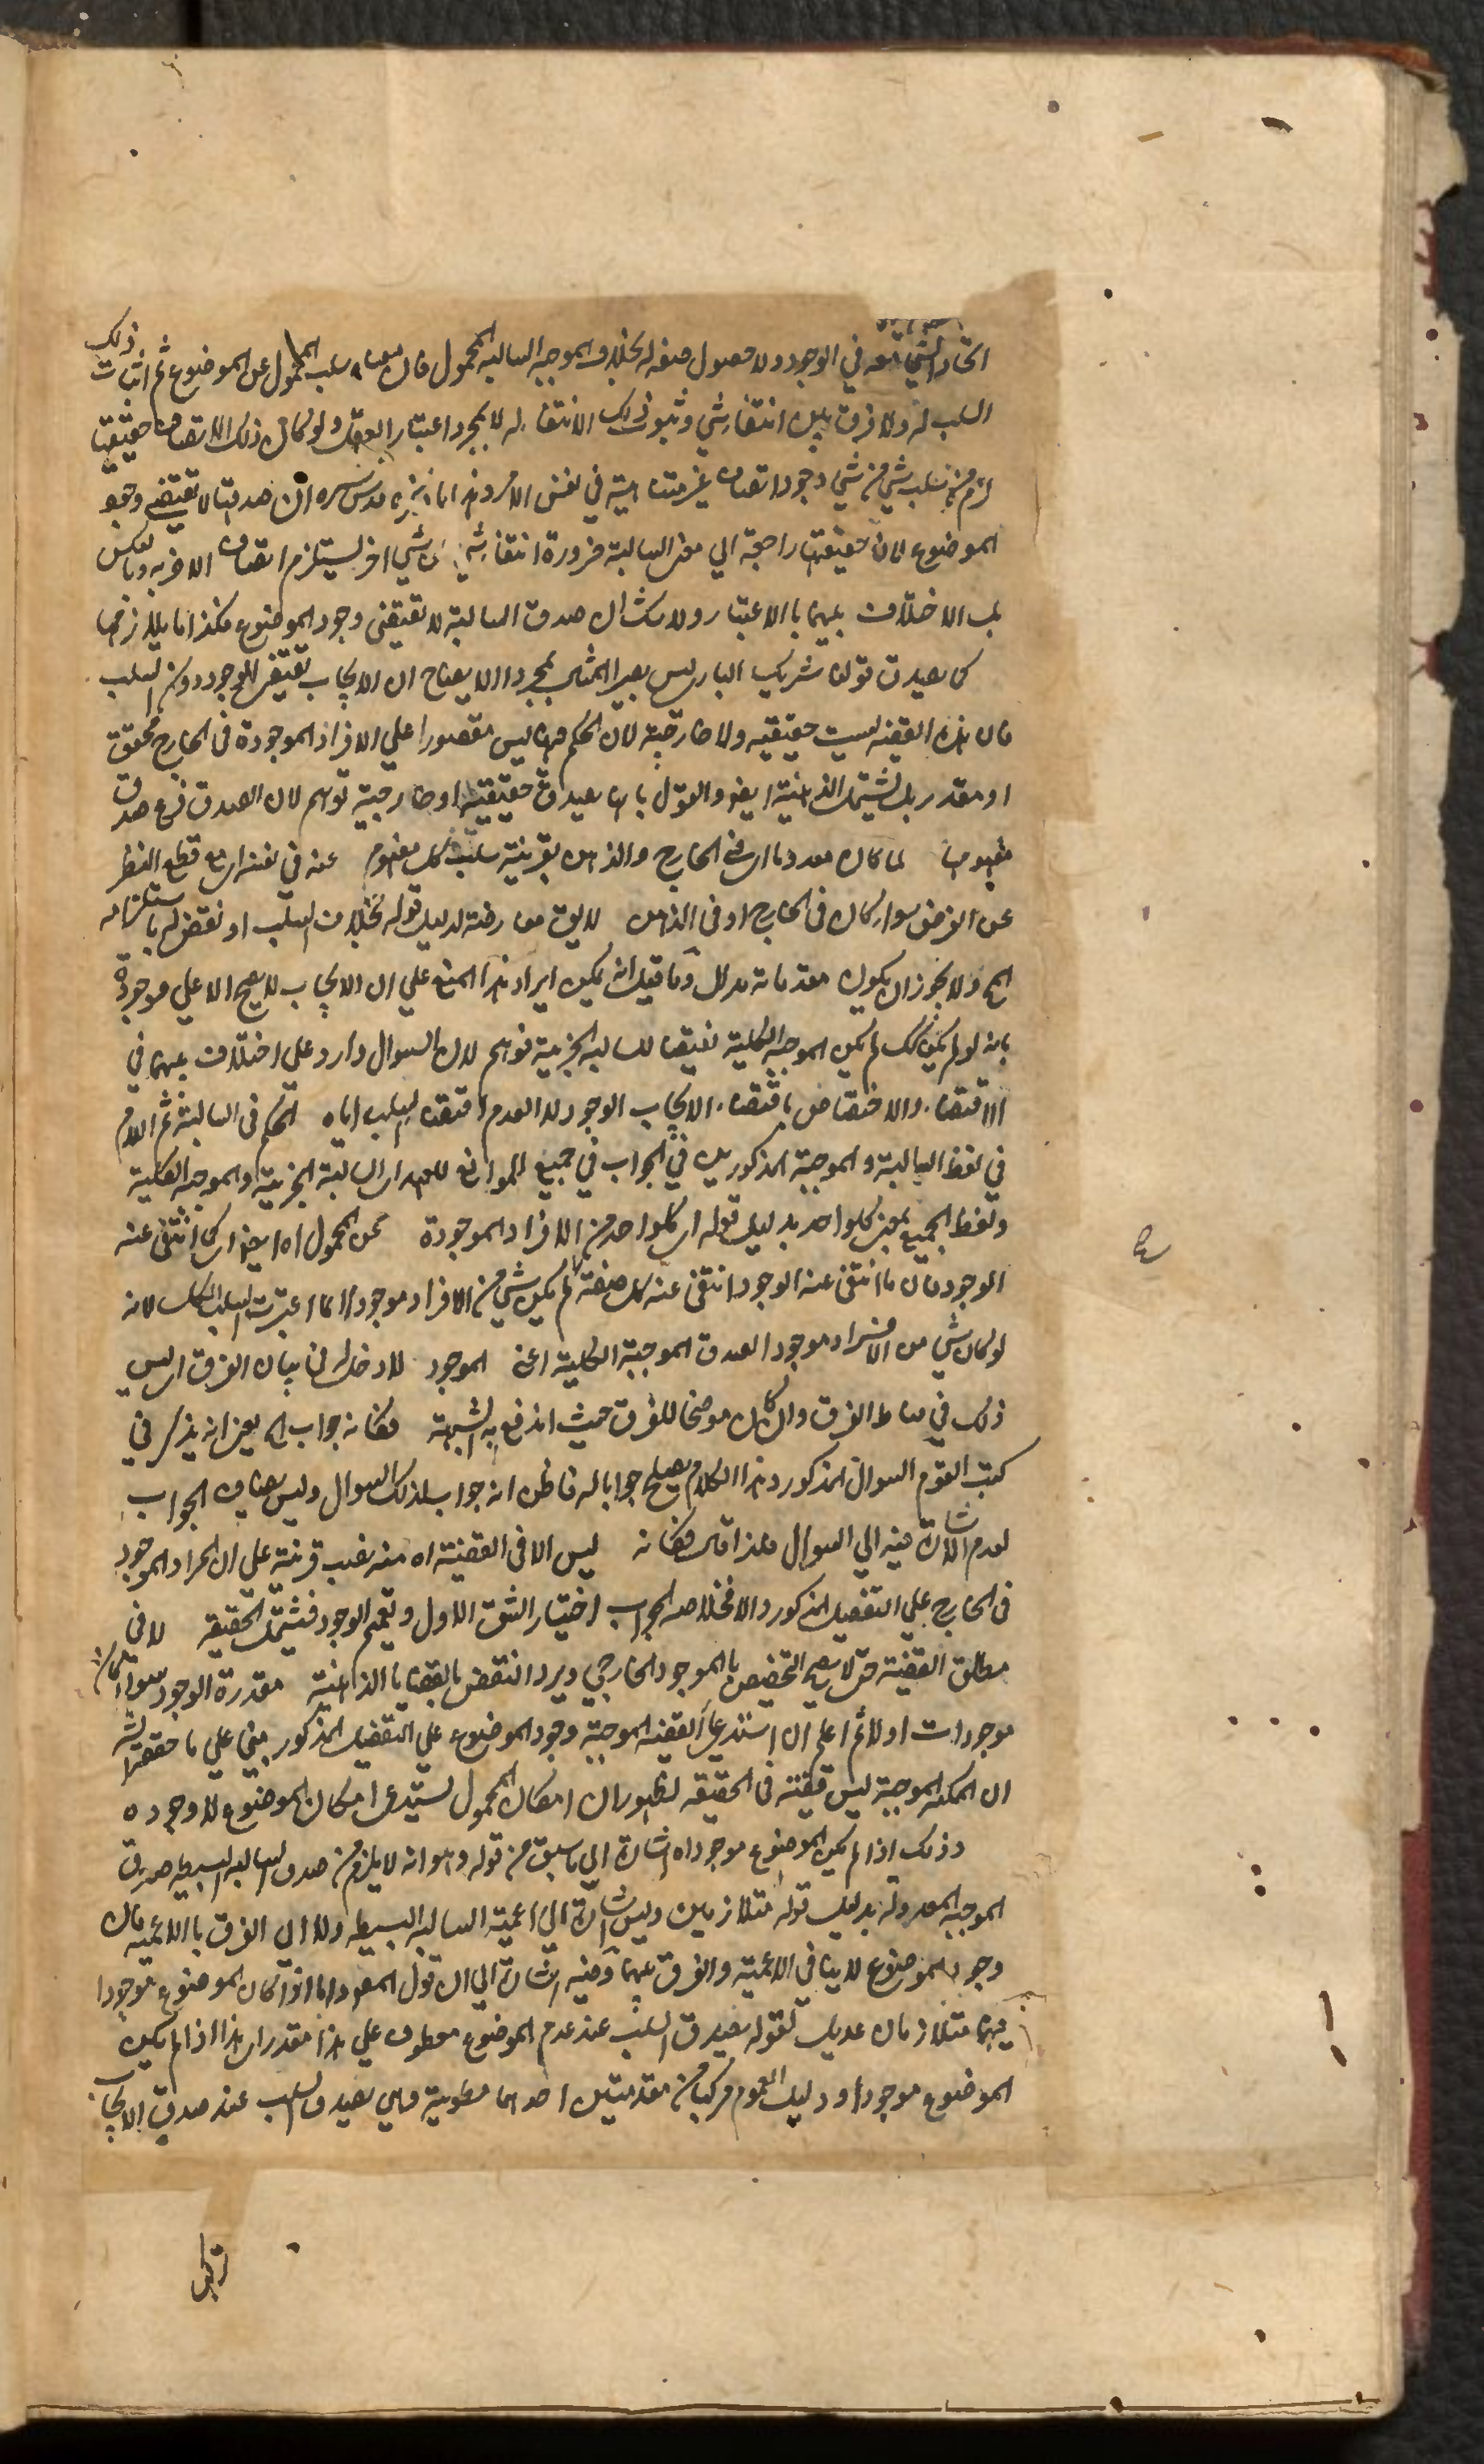 اتحاد الشيء معه في الوجود ولا حصول صفة له بخلاف الموجبة السالبة المحمول فان معناه سلب المحمول عن الموضوع ثم اثبات ذلك
السلب له ولا فرق بين انتفاء شيء وثبوت ذلك الانتفاء له الا بمجرد اعتبار العقل ولو كان ذلك الاتصاف حقيقيا
لزم من سلب شيء من شيء وجود اتصاف غير متناهية في نفس الامر وهذا ما قدس سره ان صدقها لا تقتضي وجود
الموضوع لان حقيقتها راجعة الي معنى السالبة ضرورة انتفاء شيء عن شيء اخر يستلزم اتصاف الاخر به وبالعكس
بل الاختلاف بينهما بالاعتبار ولا شك ان صدق السالبة لا تقتضي وجود الموضوع فكذا ما يلازمها
كما يصدق قولنا شريك الباري ليس بصير المثال بمجرد الايضاح ان الايجاب تقتضي الموجود دون السلب
فان هذه القضية ليست حقيقية ولا خارجية لان الحكم فيها ليس مقصورا علي الافراد الموجودة في الخارج محققة
او مقدر بل يشتمل الذهنية ايضا والقول بانها يصدق حقيقية او خارجية توهم لان الصدق فرع صدق
مفهومها لما كان معدوما اى في الخارج والذهن بقرينة سلب كل مفهوم عنه في نفسه اى مع قطع النظر
عن الفرض سواء كان في الخارج او في الذهن لا يق معارضة لدليل قوله بخلاف السلب او نقض له باستلزامه
المح ولا يجوز ان يكون مقدماته مدلل وما قيل انه يمكن ايراد هذا المنع علي ان الايجاب لا يصح الا علي موجود
بانه لو لم يكن كك لم يكن الموجبة الكلية نقيضا للسالبة الجزئية توهم لان السوال وارد علي اختلاف بينهما في
الاقتضاء والاختصاص باقتضاء الايجاب الوجود لا العدم اقتضاء السلب اياه الحكم في السالبة ثم اللام
في لفظ السالبة والموجبة المذكورين في الجواب في جميع المواضع للعهد اى السالبة الجزئية والموجبة الكلية
ولفظ الجميع بمعنى كل واحد بدليل قوله اى كل واحد من الافراد الموجودة عن المحمول اه ايضا اى كما انتفى عنه
الوجود فان ما انتفى عنه الوجود انتفى عنه كل صفة لم يكن شيء من الافراد موجودا انما اعتبرت السلب الكلي لانه
لو كان شيء من الافراد موجودا لصدق الموجبة الكلية اعنى الموجود لا دخل له في بيان الفرق اى ليس
ذلك في مناط الفرق وان كان موضحا للفرق حيث اندفع به الشبهة فكانه جواب الخ يعنى انه يذكر في
كتب القوم السوال المذكور وهذا الكلام يصلح جوابا له فاظن انه جواب لذلك السوال وليس هناك الجواب
لعدم الاشارة فيه الي السوال فلذا قال فكانه ليس الا في القضية اه فيه نصب قرينة علي ان المراد الموجود
في الخارج علي التفصيل المذكور والا فخلاصة الجواب اختيار الشق الاول وتعميم الوجود فيشتمل الحقيقة لا في
مطلق القضية حتى لا يصح التخصيص بالموجود الخارجي ويرد النقض بالقضايا الذهنية مقدرة الوجود سواء كان
موجودات او لا ثم اعلم ان استدعاء القضية الموجبة وجود الموضوع علي التفصيل المذكور مبني علي ما حققه
ان الممكنة الموجبة ليس قضية في الحقيقة لظهور ان امكان المحمول يستدعي امكان الموضوع لا وجوده
وذلك اذا لم يكن الموضوع موجودا اه اشارة الي ما سبق من قوله وهو انه لا يلزم من صدق السالبة البسيطة صدق
الموجبة المعدولة بدليل قوله متلازمين وليس اشارة الي اعمية السالبة البسيطة ولا الي الفرق بالاعمية فان
وجود الموضوع لا ينافي الاعمية والفرق بينهما وفيه اشارة الي ان قول المصر واما اذا كان الموضوع موجودا
فهما متلازمان عديل لقوله بصدق السلب عند عدم الموضوع معطوف علي هذا مقدر اى هذا اذا لم يكن
الموضوع موجودا ودليل العموم مركبا من مقدمتين احدهما مطوية وهي يصدق السلب عند صدق الايجاب